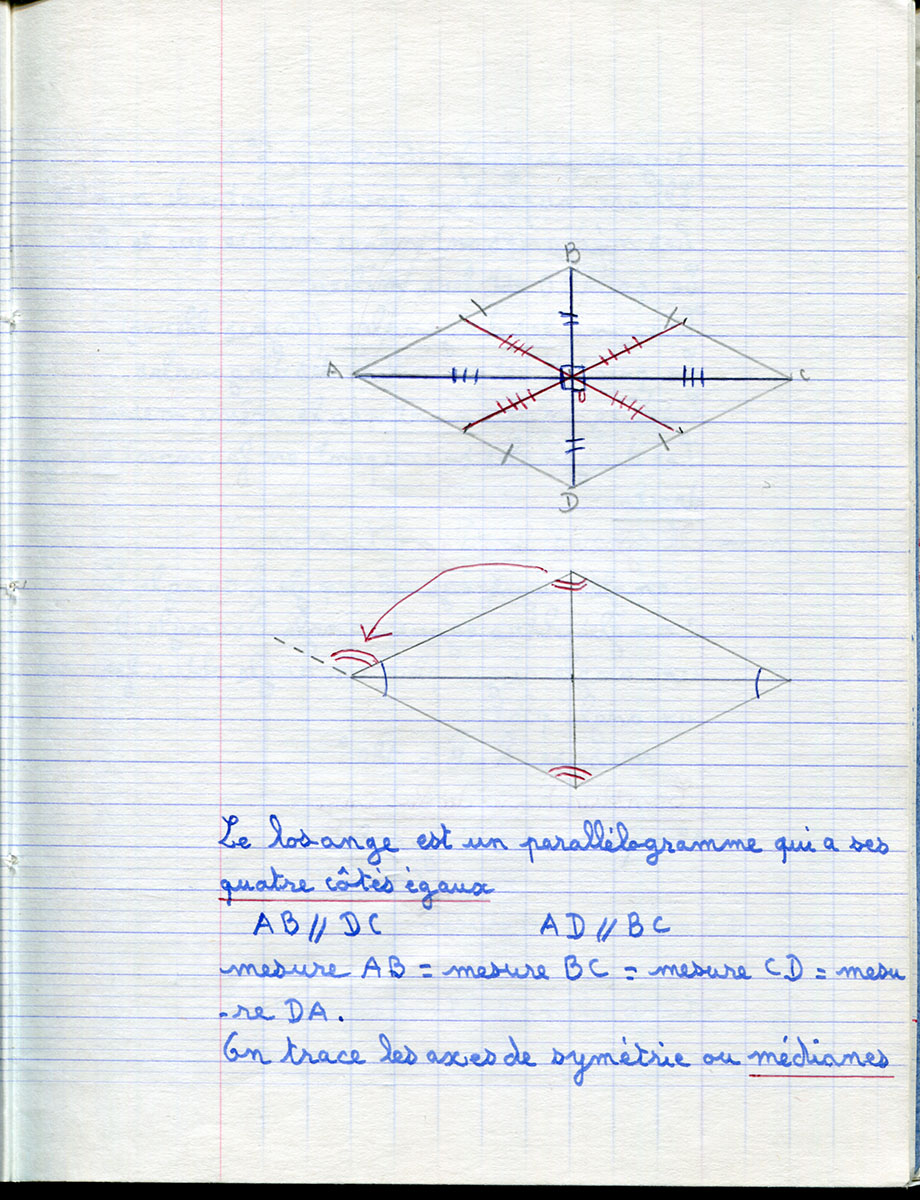 B
A
C
o
D
Le losange est un parallélogramme qui a ses
quatre côtés égaux
AB // DC AD // BC
mesure AB = mesure BC = mesure CD = mesu
-re DA.
On trace les axes de symétrie ou médianes